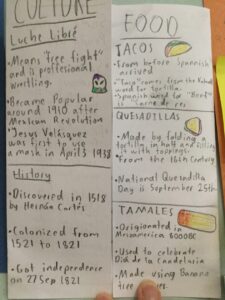 CULTURE
Luche Libré
•Means "free fight"
and is proffesional
wrestling.
•Became Popular
around 1910 after
Mexican Revolution
•Jesus Velasquez
was first to use
a mask in April 3 1938
History
•Discovered in 1518
by Hernán Cortés
•Colonized from
1521 to 1821
•Got independence
on 27 Sep 1821
FOOD
TACOS
•From before Spanish
arrived
•"Taco" comes from the
word for tortilla.
•Spanish word for "Beef"
is carne de res
QUESADILLAS
•Made by folding a
tortilla in half and filling
it with toppings
•From the 16th Century
•National Quesadilla
Day is September 25th
TAMALES
•Origionated in
Mesoamerica 8000BC
•Used to celebrate
Día de la Candelaria
•Made using Banana
tree